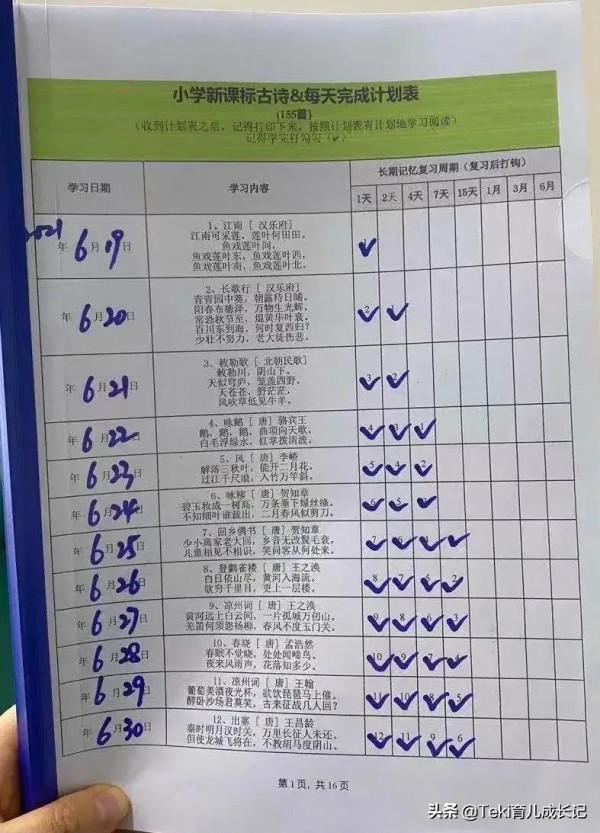 小学新课标古诗&每天完成计划表
(155首)
(收到计划表之后,记得打印下来,按照计划表有计划地学习阅读)
记得学完打勾勾(✓)
学习日期 学习内容 长期记忆复习周期(复习后打钩)
1天 2天 4天 7天 15天 1月 3月 6月
2021年6月19日
1、江南[汉乐府]
江南可采莲,莲叶何田田。
鱼戏莲叶间,
鱼戏莲叶东,鱼戏莲叶西,
鱼戏莲叶南,鱼戏莲叶北。
✓
年6月20日
2、长歌行[汉乐府]
青青园中葵,朝露待日晞。
阳春布德泽,万物生光辉。
常恐秋节至,焜黄华叶衰。
百川东到海,何时复西归?
少壮不努力,老大徒伤悲。
2✓ 1✓
年6月21日
3、敕勒歌[北朝民歌]
敕勒川,阴山下。
天似穹庐,笼盖四野。
天苍苍,野茫茫,
风吹草低见牛羊。
3✓ 2✓
年6月22日
4、咏鹅[唐]骆宾王
鹅,鹅,鹅,曲项向天歌。
白毛浮绿水,红掌拨清波。
4✓ 3✓ 1✓
年6月23日
5、风[唐]李峤
解落三秋叶,能开二月花。
过江千尺浪,入竹万竿斜。
5✓ 4✓ 2✓
年6月24日
6、咏柳[唐]贺知章
碧玉妆成一树高,万条垂下绿丝绦。
不知细叶谁裁出,二月春风似剪刀。
6✓ 5✓ 3✓
年6月25日
7、回乡偶书[唐]贺知章
少小离家老大回,乡音无改鬓毛衰。
儿童相见不相识,笑问客从何处来。
7✓ 6✓ 4✓ ✓
年6月26日
8、登鹳雀楼[唐]王之涣
白日依山尽,黄河入海流。
欲穷千里目,更上一层楼。
8✓ 7✓ 5✓ 2✓
年6月27日
9、凉州词[唐]王之涣
黄河远上白云间,一片孤城万仞山。
羌笛何须怨杨柳,春风不度玉门关。
9✓ 8✓ 6✓ 3✓
年6月28日
10、春晓[唐]孟浩然
春眠不觉晓,处处闻啼鸟。
夜来风雨声,花落知多少。
10✓ 9✓ 7✓ 4✓
年6月29日
11、凉州词[唐]王翰
葡萄美酒夜光杯,欲饮琵琶马上催。
醉卧沙场君莫笑,古来征战几人回?
11✓ 10✓ 8✓ 5✓
年6月30日
12、出塞[唐]王昌龄
秦时明月汉时关,万里长征人未还。
但使龙城飞将在,不教胡马度阴山。
12✓ 11✓ 9✓ 6✓
第1页,共16页
头条 @Teki育儿成长记